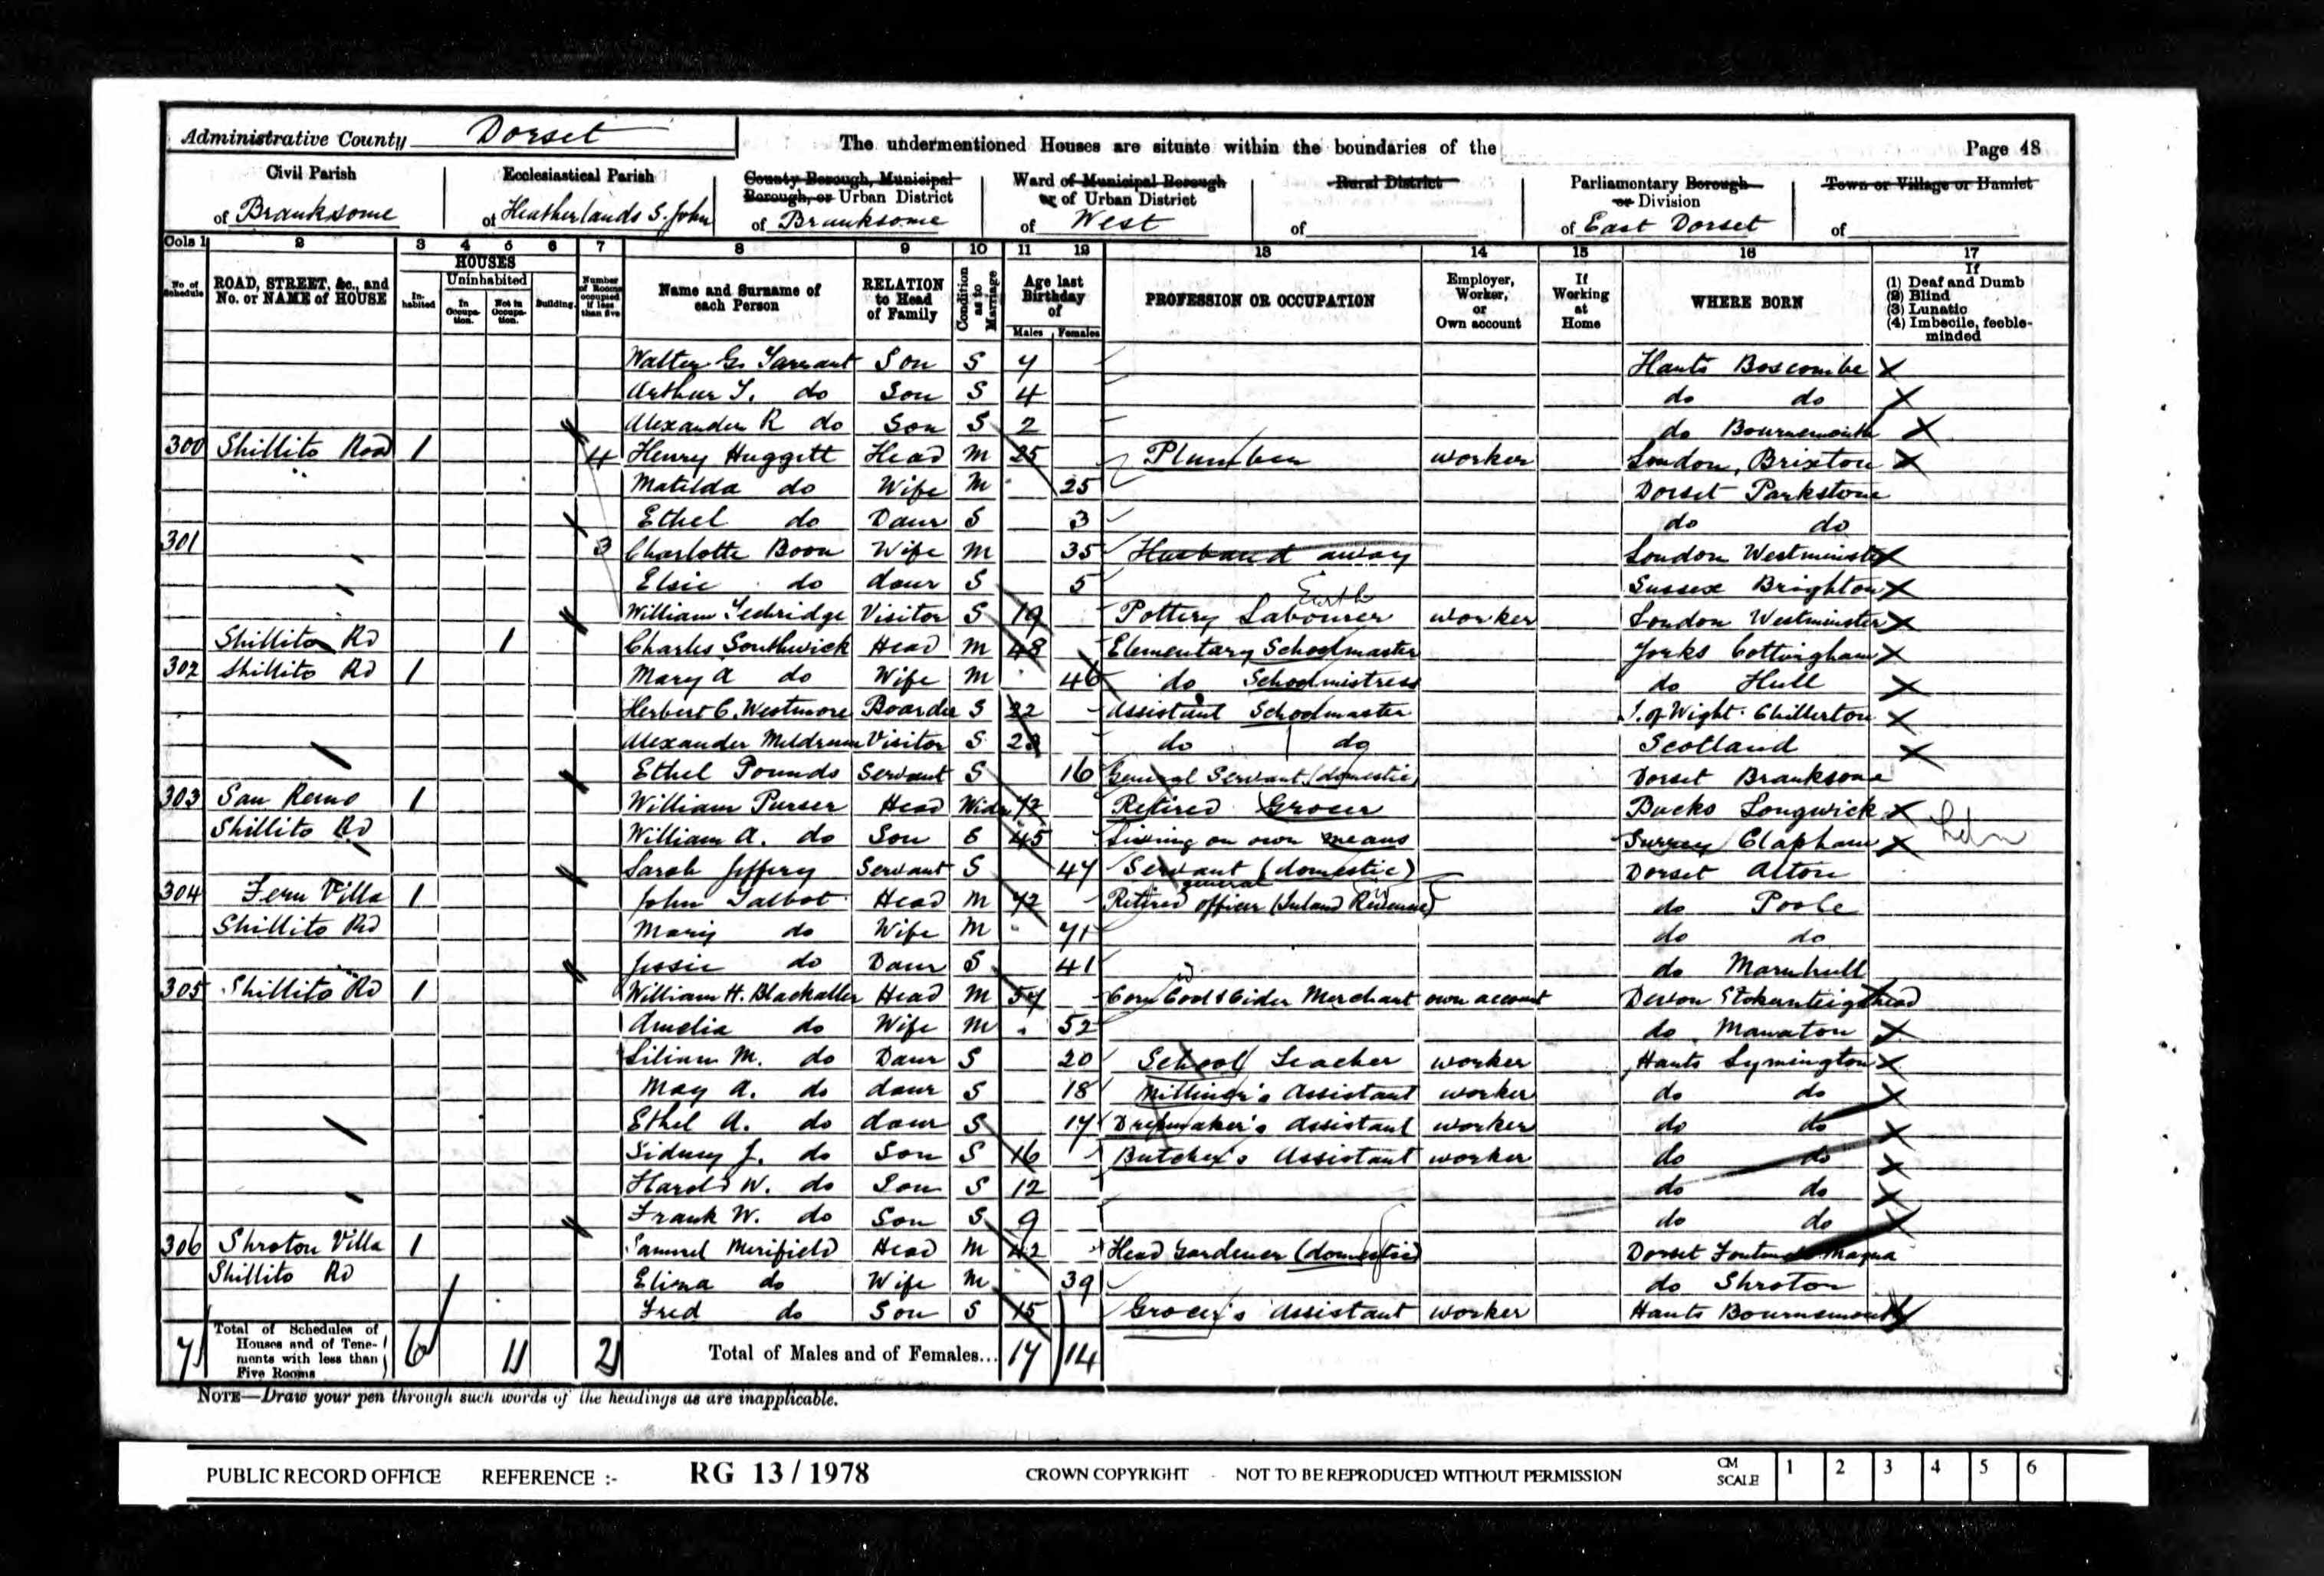 Administrative County Dorset
The undermentioned Houses are situate within the boundaries of the
Page 48
Civil Parish of Branksome
Ecclesiastical Parish of Heatherlands S. John
County Borough, Municipal Borough, or Urban District of Branksome
Ward of Municipal Borough or of Urban District of West
Rural District of
Parliamentary Borough or Division of East Dorset
Town or Village or Hamlet of
Cols 1 2 3 4 5 6 7 8 9 10 11 12 13 14 15 16 17
No. of Schedule
ROAD, STREET, &c., and No. or NAME of HOUSE
HOUSES
Inhabited
Uninhabited
In Occupation.
Not in Occupation.
Building.
Number of Rooms occupied if less than five
Name and Surname of each Person
RELATION to Head of Family
Condition as to Marriage
Age last Birthday of
Males Females
PROFESSION OR OCCUPATION
Employer, Worker, or Own account
If Working at Home
WHERE BORN
If
(1) Deaf and Dumb
(2) Blind
(3) Lunatic
(4) Imbecile, feeble-minded
Walter G. Tarrant Son S 7 Hants Boscombe
Arthur T. do Son S 4 do do
Alexander R do Son S 2 do Bournemouth
300 Shillito Road 1 4 Henry Huggett Head M 25 Plumber worker London, Brixton
Matilda do Wife M 25 Dorset Parkstone
Ethel do Daur S 3 do do
301 3 Charlotte Boon Wife M 35 Husband away London Westminster
Elsie do daur S 5 Sussex Brighton
William Visitor S 19 Pottery Earth Labourer worker London Westminster
Shillito Rd 1 Charles Southwick Head M 48 Elementary Schoolmaster Yorks Cottingham
302 Shillito Rd 1 Mary A do Wife M 46 do Schoolmistress do Hull
Herbert C. Westmore Boarder S 22 Assistant Schoolmaster I. of Wight Chillerton
Alexander Meldrum Visitor S 23 do do Scotland
Ethel Pounds Servant S 16 General Servant (domestic) Dorset Branksome
303 San Remo 1 William Purser Head Widr 72 Retired Grocer Bucks Longwick
Shillito Rd William A. do Son S 45 Living on own means Surrey Clapham
Sarah Jeffery Servant S 47 Servant (domestic) general Dorset Alton
304 Fern Villa 1 John Talbot Head M 72 Retired officer (Inland Revenue) do Poole
Shillito Rd Mary do Wife M 71 do do
Jessie do Daur S 41 do Marnhull
305 Shillito Rd 1 William H. Blackaller Head M 54 Corn Coal & Cider Merchant own account Devon Stokeinteignhead
Amelia do Wife M 52 do Manaton
Lilian M. do Daur S 20 School Teacher worker Hants Lymington
May A. do daur S 18 Milliner's Assistant worker do do
Ethel A. do daur S 17 Dressmaker's Assistant worker do do
Sidney J. do Son S 16 Butcher's Assistant worker do do
Harold W. do Son S 12 do do
Frank W. do Son S 9 do do
306 Shroton Villa 1 Samuel Merifield Head M 42 Head Gardener (domestic) Dorset Fontmell Magna
Shillito Rd Eliza do Wife M 39 do Shroton
Fred do Son S 15 Grocer's Assistant worker Hants Bournemouth
7 Total of Schedules of Houses and of Tenements with less than Five Rooms 6 1 2 Total of Males and of Females... 17 14
NOTE—Draw your pen through such words of the headings as are inapplicable.
PUBLIC RECORD OFFICE REFERENCE :- RG 13 / 1978 CROWN COPYRIGHT - NOT TO BE REPRODUCED WITHOUT PERMISSION CM SCALE 1 2 3 4 5 6